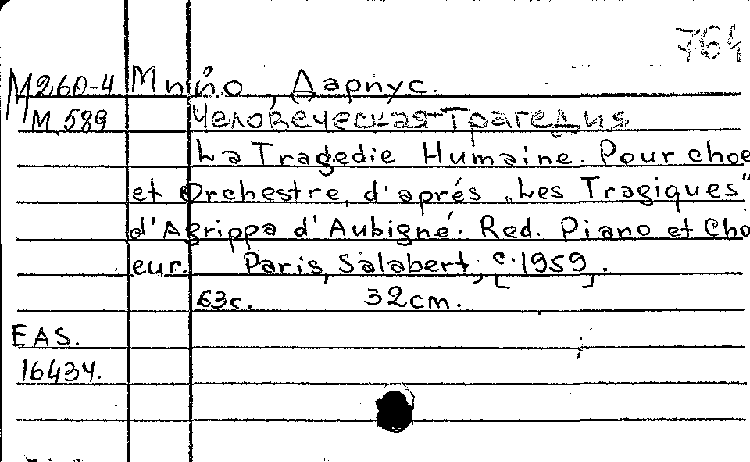 764
М260-4 Мийо, Дариус.
М 589 Человеческая Трагедия
La Tragedie Humaine. Pour choe
et Orchestre, d'aprés „Les Tragiques"
d'Agrippa d'Aubigné. Red. Piano et Cho
eur. Paris, Salabert, [c.1959].
63c. 32cm.
EAS.
16434.